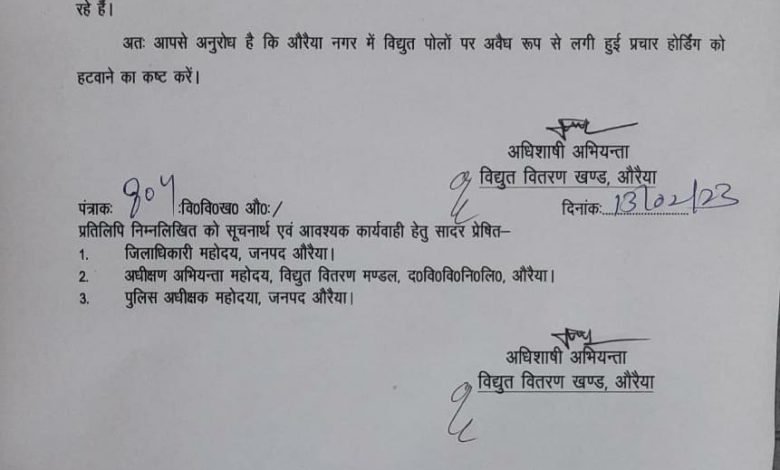 रहे हैं।
अतः आपसे अनुरोध है कि औरैया नगर में विद्युत पोलों पर अवैध रूप से लगी हुई प्रचार होर्डिंग को
हटवाने का कष्ट करें।
अधिशाषी अभियन्ता
विद्युत वितरण खण्ड, औरैया
पंत्राकः :वि0वि0ख0 औ0ः/ दिनांकः 13/02/23
प्रतिलिपि निम्नलिखित को सूचनार्थ एवं आवश्यक कार्यवाही हेतु सादर प्रेषित–
1. जिलाधिकारी महोदय, जनपद औरैया।
2. अधीक्षण अभियन्ता महोदय, विद्युत वितरण मण्डल, द0वि0वि0नि0लि0, औरैया।
3. पुलिस अधीक्षक महोदया, जनपद औरैया।
अधिशाषी अभियन्ता
विद्युत वितरण खण्ड, औरैया